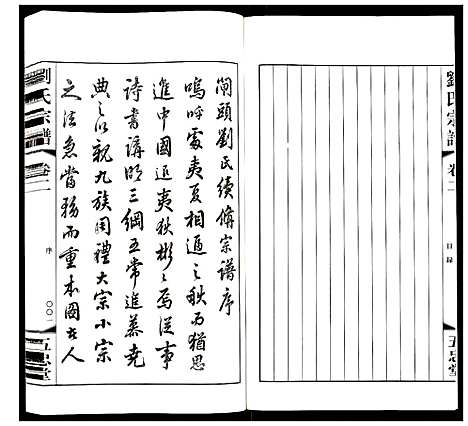 劉氏宗譜
卷二
目錄
五忠堂
閘頭劉氏續脩宗譜序
嗚呼處夷夏相逼之秋而猶思
進中國退夷狄彬彬焉從事
詩書講明三綱五常進慕堯
典之以親九族周禮大宗小宗
之法急當務而重本圖去人
劉氏宗譜
卷二
序
〇〇一
五忠堂